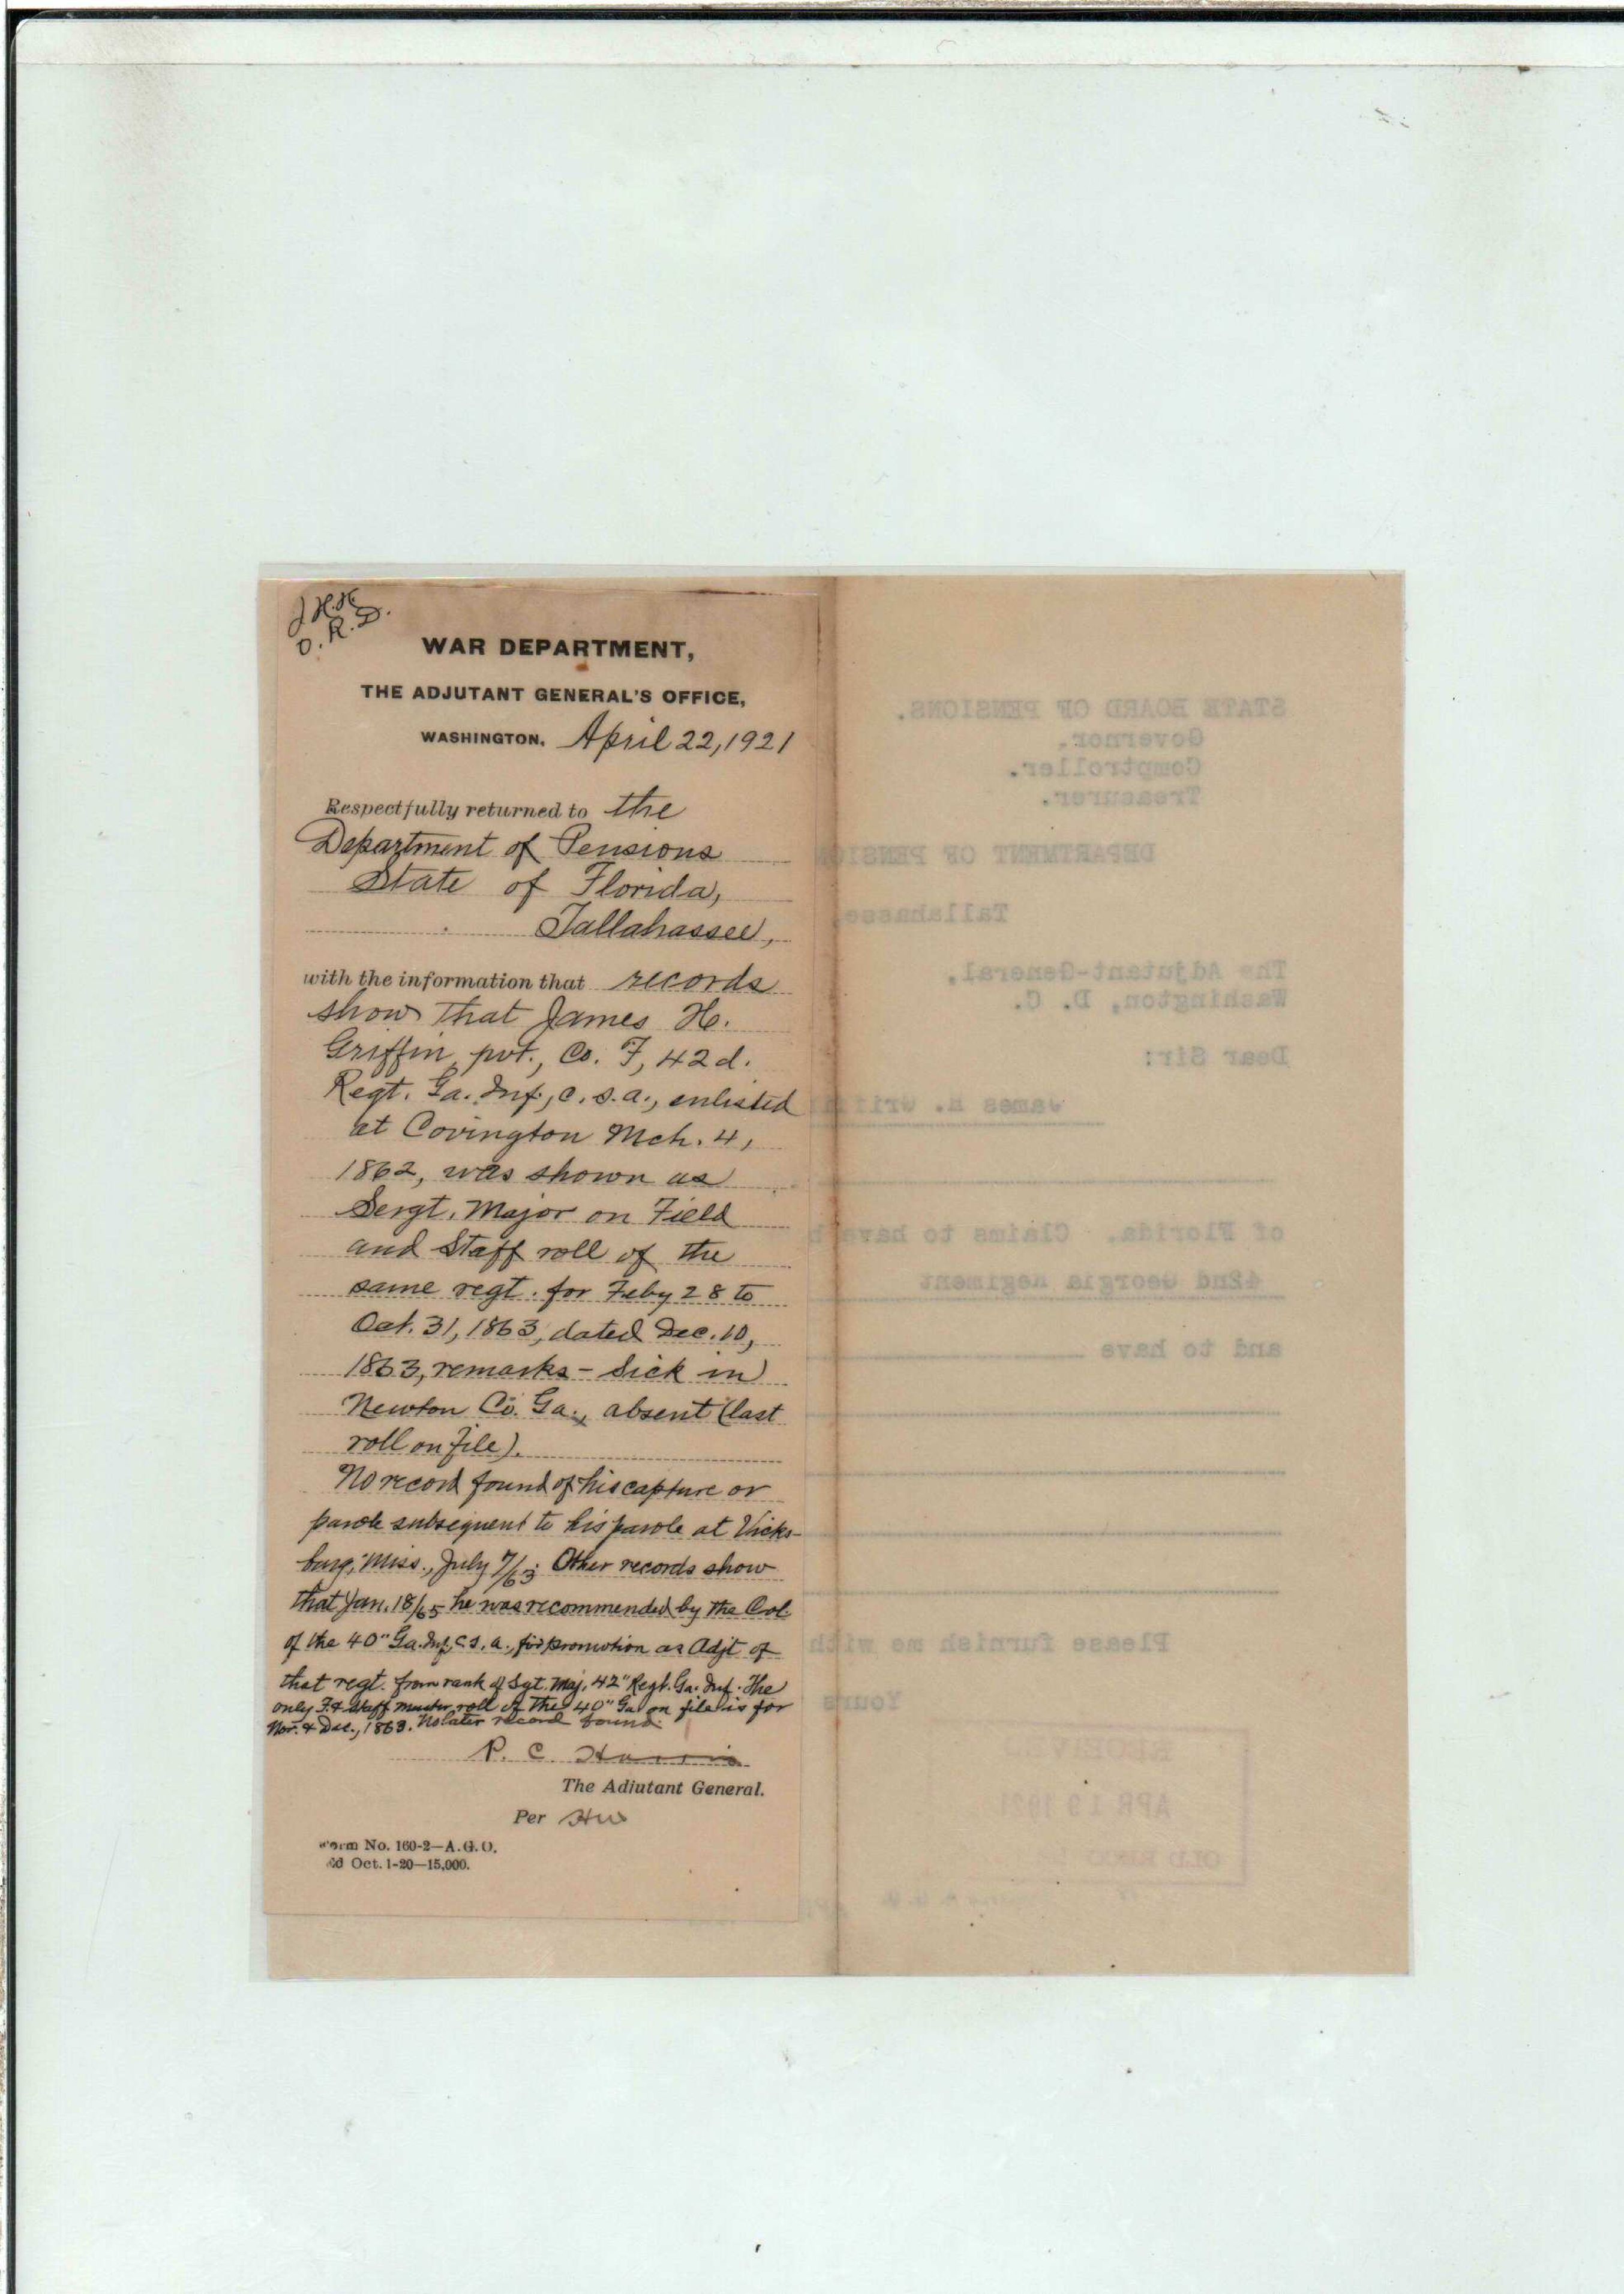 J.H.H.
O.R.D.
WAR DEPARTMENT,
THE ADJUTANT GENERAL'S OFFICE,
WASHINGTON, April 22, 1921
Respectfully returned to the
Department of Pensions
State of Florida,
Tallahassee,
with the information that records
show that James H.
Griffin, pvt., Co. F, 42d.
Regt. Ga. Inf., C.S.A., enlisted
at Covington Mch. 4,
1862, was shown as
Sergt. Major on Field
and Staff roll of the
same regt. for Feby 28 to
Oct. 31, 1863, dated Dec. 10,
1863, remarks - Sick in
Newton Co. Ga., absent (last
roll on file).
No record found of his capture or
parole subsequent to his parole at Vicks-
burg, Miss., July 7/63. Other records show
that Jan. 18/65 he was recommended by the Col.
of the 40" Ga. Inf, C.S.A., for promotion as Adjt of
that regt. from rank of Sgt. Maj. 42" Regt. Ga. Inf. The
only F. & Staff muster roll of the 40" Ga on file is for
Nov. & Dec., 1863. No later record found.
P. C. Harris
The Adjutant General.
Per HW
Form No. 160-2—A.G.O.
Ed Oct. 1-20—15,000.
STATE BOARD OF PENSIONS.
Governor.
Comptroller.
Treasurer.
DEPARTMENT OF PENSION
Tallahassee,
The Adjutant-General,
Washington, D. C.
Dear Sir:
James H. Griffi
of Florida. Claims to have b
42nd Georgia Regiment
and to have
Please furnish me with
Yours
APR 19 1921
OLD